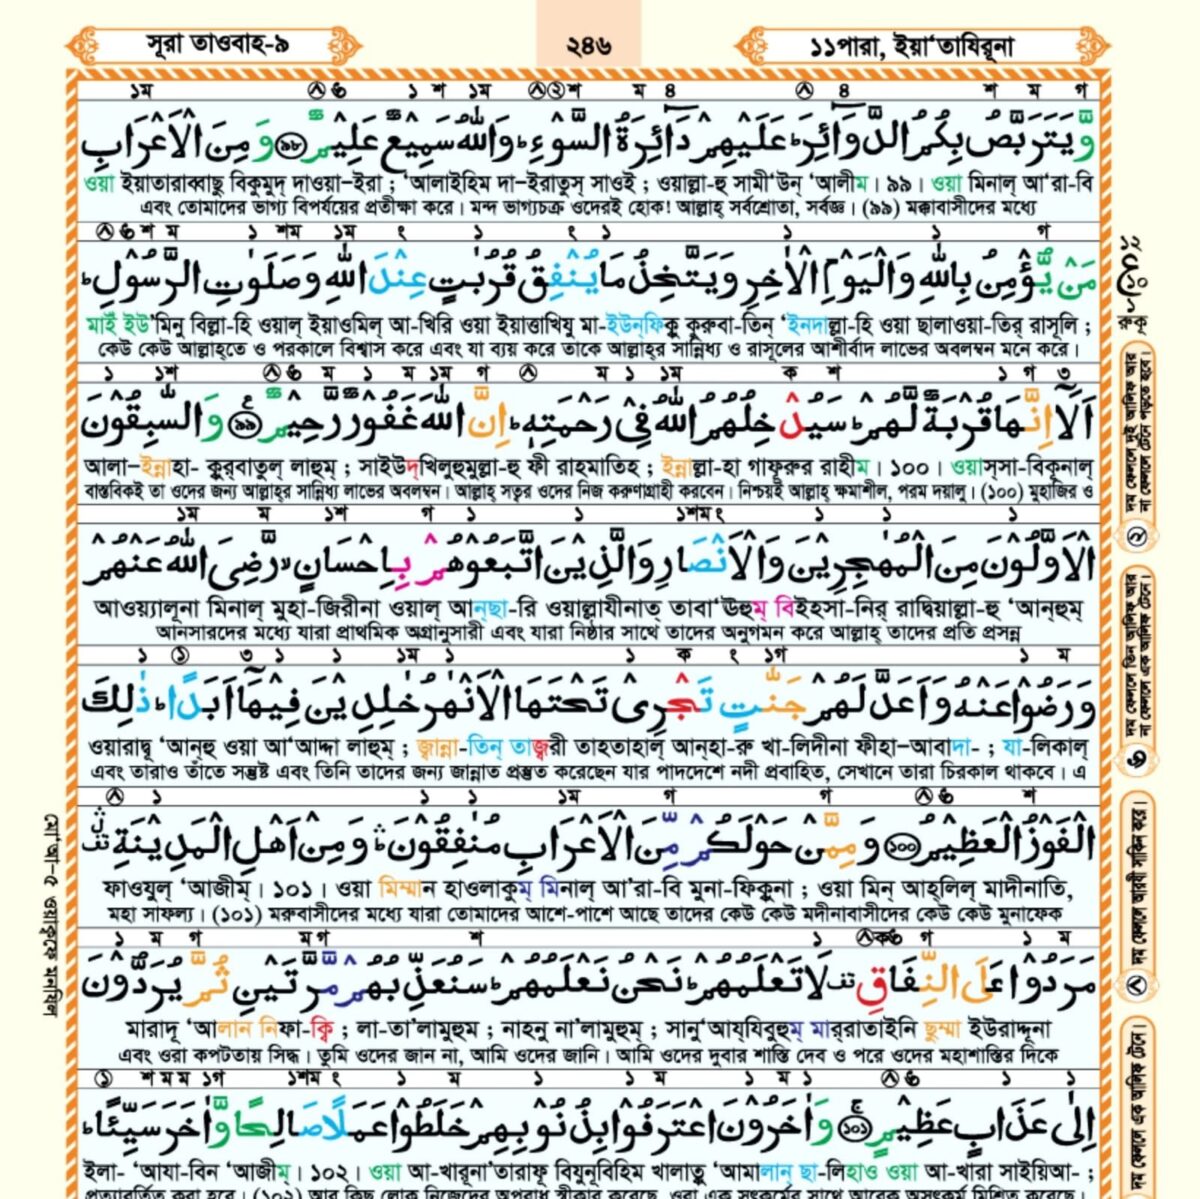 সূরা তাওবাহ-৯
২৪৬
১১পারা, ইয়া‘তাযিরূনা
وَّيَتَرَبَّصُ بِكُمُ الدَّوَآئِرَ ؕ عَلَيْهِمْ دَآئِرَةُ السَّوْءِ ؕ وَاللّٰهُ سَمِيْعٌ عَلِيْمٌ ﴿৯৮﴾ وَمِنَ الْاَعْرَابِ
ওয়া ইয়াতারাব্বাছু বিকুমুদ্ দাওয়া–ইরা ; ‘আলাইহিম দা–ইরাতুস্ সাওই ; ওয়াল্লা-হু সামী‘উন্ ‘আলীম। ৯৯। ওয়া মিনাল্ আ‘রা-বি
এবং তোমাদের ভাগ্য বিপর্যয়ের প্রতীক্ষা করে। মন্দ ভাগ্যচক্র ওদেরই হোক! আল্লাহ্ সর্বশ্রোতা, সর্বজ্ঞ। (৯৯) মরুবাসীদের মধ্যে
مَنْ يُّؤْمِنُ بِاللّٰهِ وَالْيَوْمِ الْاٰخِرِ وَيَتَّخِذُ مَا يُنْفِقُ قُرُبٰتٍ عِنْدَ اللّٰهِ وَصَلَوٰتِ الرَّسُوْلِ ؕ
মাইঁ ইউ’মিনু বিল্লা-হি ওয়াল্ ইয়াওমিল্ আ-খিরি ওয়া ইয়াত্তাখিযু মা-ইউন্ফিকু কুরুবা-তিন্ ‘ইনদাল্লা-হি ওয়া ছালাওয়া-তির্ রাসূলি ;
কেউ কেউ আল্লাহ্‌তে ও পরকালে বিশ্বাস করে এবং যা ব্যয় করে তাকে আল্লাহ্‌র সান্নিধ্য ও রাসূলের আশীর্বাদ লাভের অবলম্বন মনে করে।
اَلَآ اِنَّهَا قُرْبَةٌ لَّهُمْ ؕ سَيُدْخِلُهُمُ اللّٰهُ فِيْ رَحْمَتِهٖ ؕ اِنَّ اللّٰهَ غَفُوْرٌ رَّحِيْمٌ ﴿৯৯﴾ وَالسّٰبِقُوْنَ
আলা–ইন্নাহা- কুর্‌বাতুল্ লাহুম্ ; সাইউদ্খিলুহুমুল্লা-হু ফী রাহমাতিহ ; ইন্নাল্লা-হা গাফূরুর রাহীম। ১০০। ওয়াস্‌সা-বিকূনাল্
বাস্তবিকই তা ওদের জন্য আল্লাহ্‌র সান্নিধ্য লাভের অবলম্বন। আল্লাহ্ সত্বর ওদের নিজ করুণাগ্রাহী করবেন। নিশ্চয়ই আল্লাহ্ ক্ষমাশীল, পরম দয়ালু। (১০০) মুহাজির ও
الْاَوَّلُوْنَ مِنَ الْمُهٰجِرِيْنَ وَالْاَنْصَارِ وَالَّذِيْنَ اتَّبَعُوْهُمْ بِاِحْسَانٍ ۙ رَّضِيَ اللّٰهُ عَنْهُمْ
আওয়্যালূনা মিনাল্ মুহা-জিরীনা ওয়াল্ আন্ছা-রি ওয়াল্লাযীনাত্ তাবা‘ঊহুম্ বিইহসা-নির্ রাদ্বিয়াল্লা-হু ‘আন্‌হুম্
আনসারদের মধ্যে যারা প্রাথমিক অগ্রানুসারী এবং যারা নিষ্ঠার সাথে তাদের অনুগমন করে আল্লাহ্ তাদের প্রতি প্রসন্ন
وَرَضُوْا عَنْهُ وَاَعَدَّ لَهُمْ جَنّٰتٍ تَجْرِيْ تَحْتَهَا الْاَنْهٰرُ خٰلِدِيْنَ فِيْهَآ اَبَدًا ؕ ذٰلِكَ
ওয়ারাদ্বূ ‘আন্‌হু ওয়া আ‘আদ্দা লাহুম্ ; জ্বান্না-তিন্ তাজ্বরী তাহতাহাল্ আন্‌হা-রু খা-লিদীনা ফীহা–আবাদা- ; যা-লিকাল্
এবং তারাও তাঁতে সন্তুষ্ট এবং তিনি তাদের জন্য জান্নাত প্রস্তুত করেছেন যার পাদদেশে নদী প্রবাহিত, সেখানে তারা চিরকাল থাকবে। এ
الْفَوْزُ الْعَظِيْمُ ﴿১০০﴾ وَمِمَّنْ حَوْلَكُمْ مِّنَ الْاَعْرَابِ مُنٰفِقُوْنَ ؕ وَمِنْ اَهْلِ الْمَدِيْنَةِ
ফাওযুল্ ‘আজীম্। ১০১। ওয়া মিম্মান হাওলাকুম্ মিনাল্ আ‘রা-বি মুনা-ফিকূনা ; ওয়া মিন্ আহ্‌লিল্ মাদীনাতি,
মহা সাফল্য। (১০১) মরুবাসীদের মধ্যে যারা তোমাদের আশে-পাশে আছে তাদের কেউ কেউ মদীনাবাসীদের কেউ কেউ মুনাফেক
مَرَدُوْا عَلَى النِّفَاقِ لَا تَعْلَمُهُمْ ؕ نَحْنُ نَعْلَمُهُمْ ؕ سَنُعَذِّبُهُمْ مَّرَّتَيْنِ ثُمَّ يُرَدُّوْنَ
মারাদূ ‘আলান নিফা-ক্বি ; লা-তা‘লামুহুম ; নাহনু না‘লামুহুম্ ; সানু‘আয্‌যিবুহুম্ মার্‌রাতাইনি ছুম্মা ইউরাদ্দূনা
এবং ওরা কপটতায় সিদ্ধ। তুমি ওদের জান না, আমি ওদের জানি। আমি ওদের দুবার শাস্তি দেব ও পরে ওদের মহাশাস্তির দিকে
اِلٰى عَذَابٍ عَظِيْمٍ ﴿১০১﴾ وَاٰخَرُوْنَ اعْتَرَفُوْا بِذُنُوْبِهِمْ خَلَطُوْا عَمَلًا صَالِحًا وَّاٰخَرَ سَيِّئًا ؕ
ইলা- ‘আযা-বিন ‘আজীম্। ১০২। ওয়া আ-খারূনা‘তারাফূ বিযুনূবিহিম খালাতু ‘আমালান ছা-লিহাও ওয়া আ-খারা সাইয়িআ- ;
মো‘আ-৫ ওয়াকুফে মনযিল